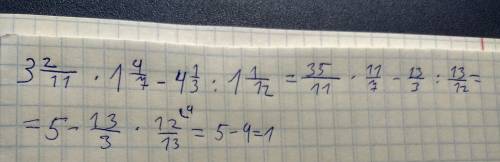 3 2/11 · 1 4/7 - 4 1/3 : 1 1/12 = 35/11 · 11/7 - 13/3 : 13/12 =
= 5 - 13/3 · 12/13 = 5 - 4 = 1